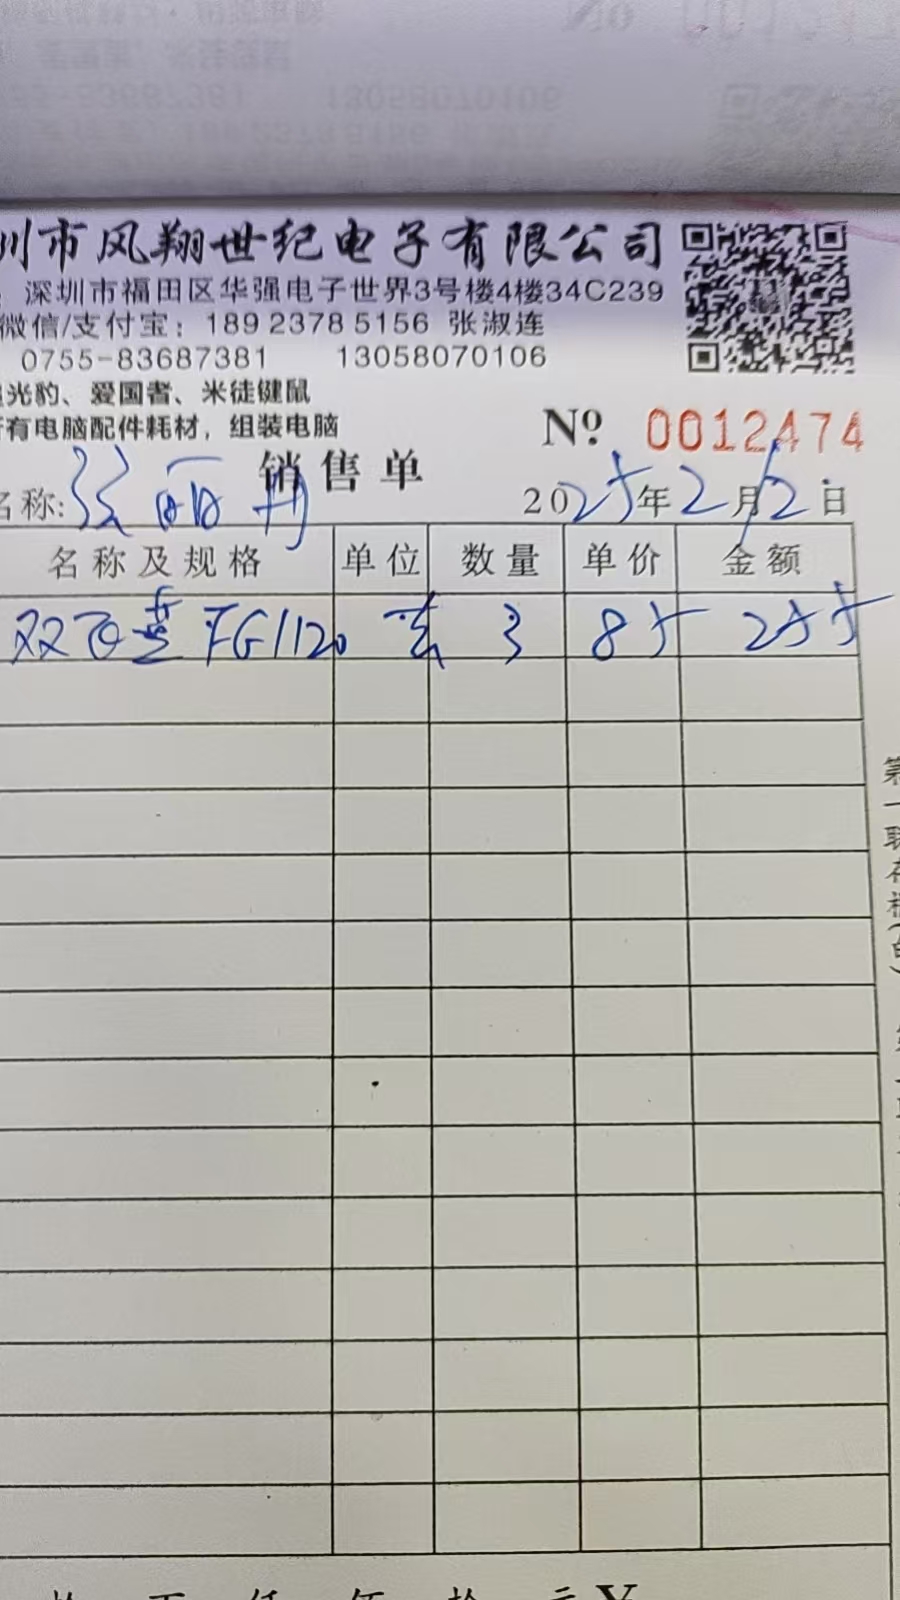 圳市风翔世纪电子有限公司
深圳市福田区华强电子世界3号楼4楼34C239
微信/支付宝：189 2378 5156 张淑连
0755-83687381 13058070106
光豹、爱国者、米徒键鼠
有电脑配件耗材，组装电脑
№ 0012474
销售单
名称: 张丽丹 2025年2月12日
名称及规格 单位 数量 单价 金额
双飞燕 FG1120 套 3 85 255